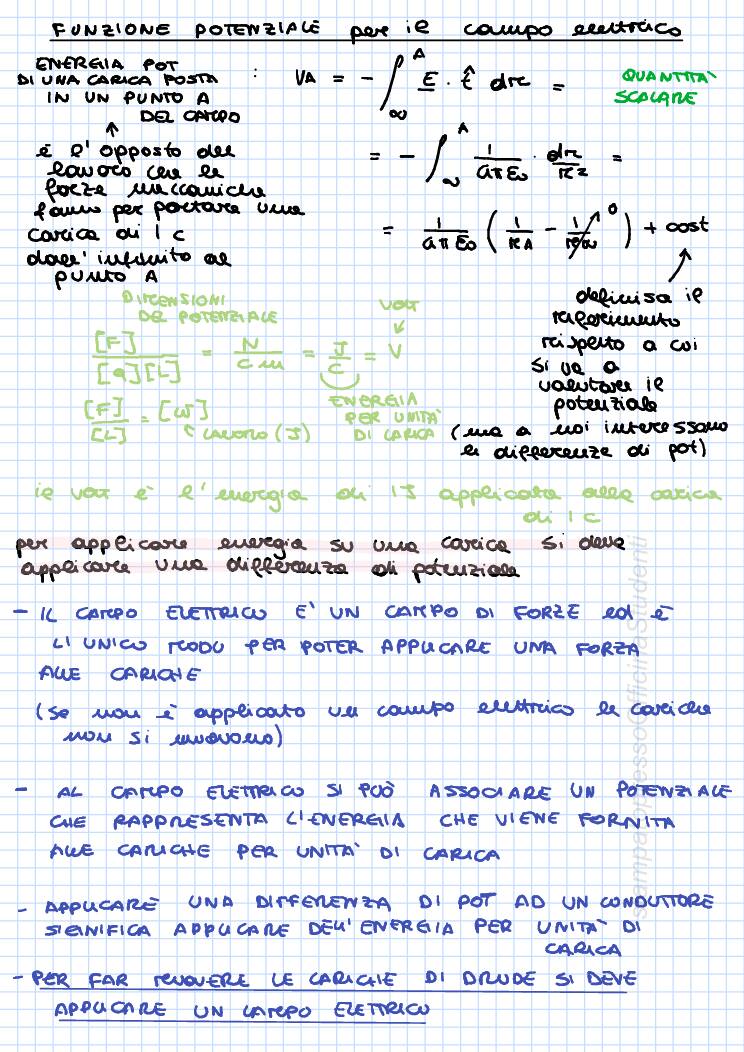 FUNZIONE POTENZIALE per il campo elettrico
ENERGIA POT
DI UNA CARICA POSTA
IN UN PUNTO A
DEL CAMPO
: VA = - ∫_∞^A E · t̂ dr =
QUANTITA'
SCALARE
è l'opposto del
lavoro che le
forze meccaniche
fanno per portare una
carica di 1 c
dall'infinito al
punto A
= - ∫_∞^A 1/4πε0 · dr/r2 =
= 1/4πε0 ( 1/rA - 1/r∞ ) + cost
0
definisce il
riferimento
rispetto a cui
si va a
valutare il
potenziale
(ma a noi interessano
le differenze di pot)
DIMENSIONI
DEL POTENZIALE
VOLT
[F]/[q][L] = N/cm = J/C = V
[F]/[L] = [W]
LAVORO (J)
ENERGIA
PER UNITA'
DI CARICA
il volt è l'energia di 1J applicata alla carica
di 1 c
per applicare energia su una carica si deve
applicare una differenza di potenziale
- IL CAMPO ELETTRICO E' UN CAMPO DI FORZE ed è
L'UNICO MODO PER POTER APPLICARE UNA FORZA
ALLE CARICHE
(se non è applicato un campo elettrico le cariche
non si muovono)
- AL CAMPO ELETTRICO SI PUÒ ASSOCIARE UN POTENZIALE
CHE RAPPRESENTA L'ENERGIA CHE VIENE FORNITA
ALLE CARICHE PER UNITA' DI CARICA
- APPLICARE UNA DIFFERENZA DI POT AD UN CONDUTTORE
SIGNIFICA APPLICARE DELL'ENERGIA PER UNITA' DI
CARICA
- PER FAR MUOVERE LE CARICHE DI DRUDE SI DEVE
APPLICARE UN CAMPO ELETTRICO